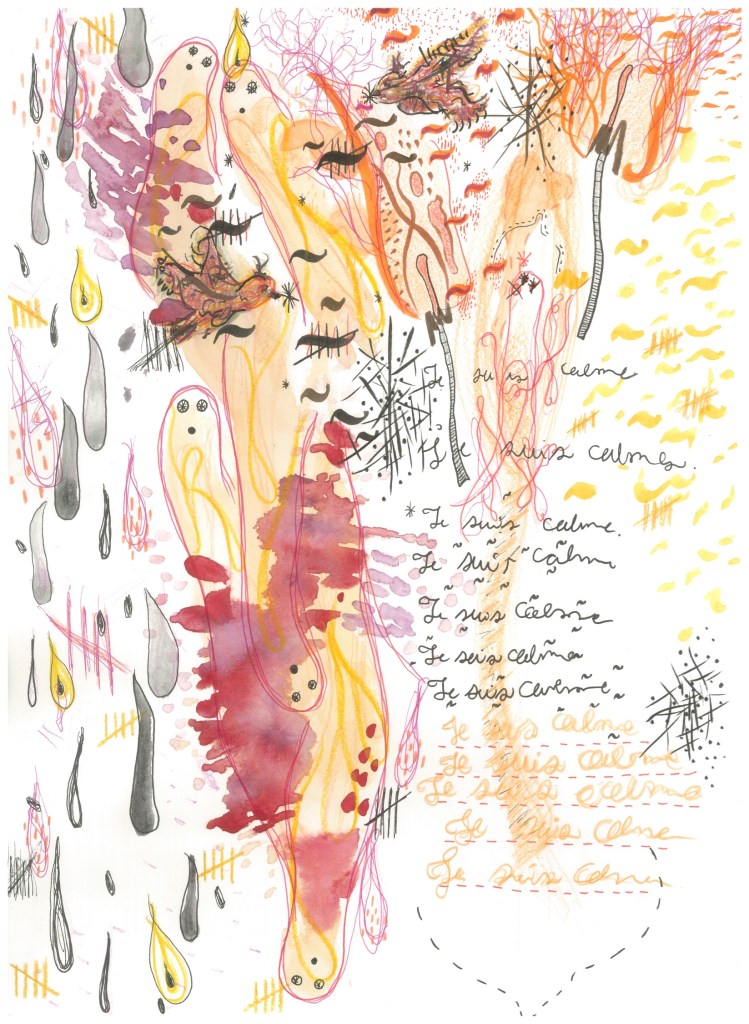 Je suis calme
Je suis calmes.
Je suis calme.
Je suis calm
Je suis calme
Je suis calme
Je suis calme
Je suis calme
Je suis calme
Je suis calme
Je suis calme
Je suis calme